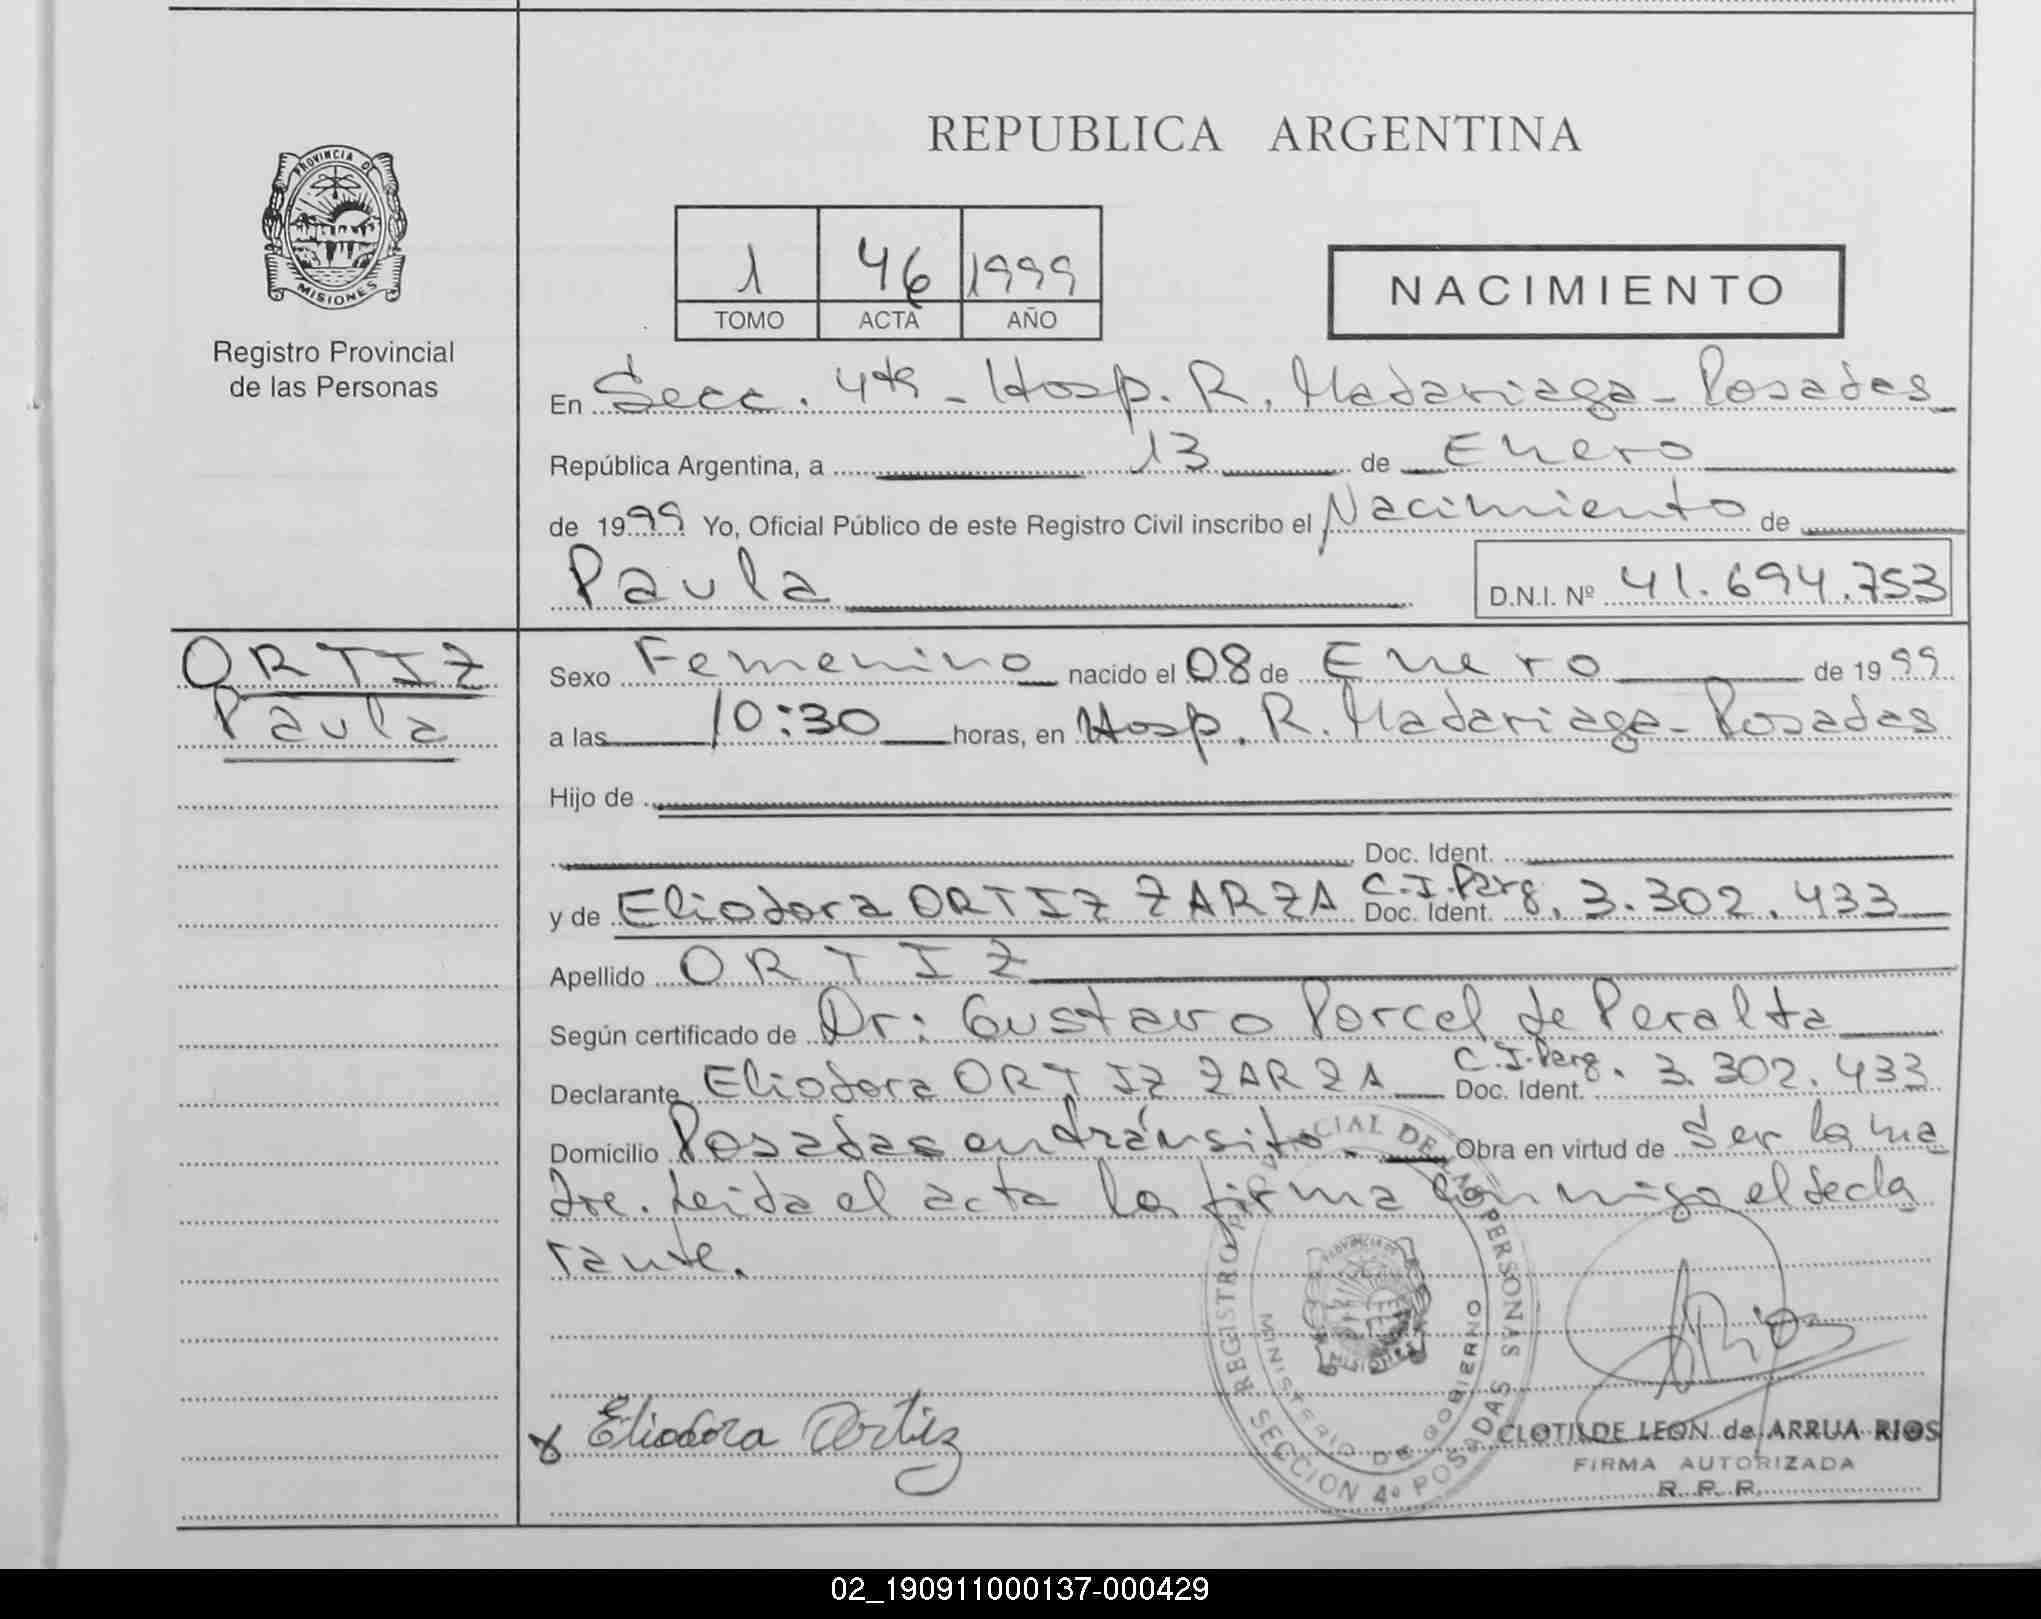 REPUBLICA ARGENTINA
PROVINCIA DE
MISIONES
Registro Provincial
de las Personas
1 46 1999
TOMO ACTA AÑO
NACIMIENTO
En Secc. 4ta - Hosp. R. Madariaga - Posadas
República Argentina, a 13 de Enero
de 1999 Yo, Oficial Público de este Registro Civil inscribo el Nacimiento de
Paula D.N.I. Nº 41.694.753
ORTIZ
Paula
Sexo Femenino nacido el 08 de Enero de 1999
a las 10:30 horas, en Hosp. R. Madariaga - Posadas
Hijo de
Doc. Ident.
y de Eliodora ORTIZ ZARZA Doc. Ident. C.I. Parg. 3.302.433
Apellido ORTIZ
Según certificado de Dr: Gustavo Porcel de Peralta
Declarante Eliodora ORTIZ ZARZA Doc. Ident. C.I. Parg. 3.302.433
Domicilio Posadas en tránsito. Obra en virtud de Ser la ma
dre. Leida el acta la firma conmigo el decla
rante.
REGISTRO PROVINCIAL DE LAS PERSONAS
MINISTERIO DE GOBIERNO
SECCION 4º POSADAS
PROVINCIA DE
MISIONES
ARios
Eliodora Ortiz
CLOTILDE LEON de ARRUA RIOS
FIRMA AUTORIZADA
R. P. P.
02_190911000137-000429